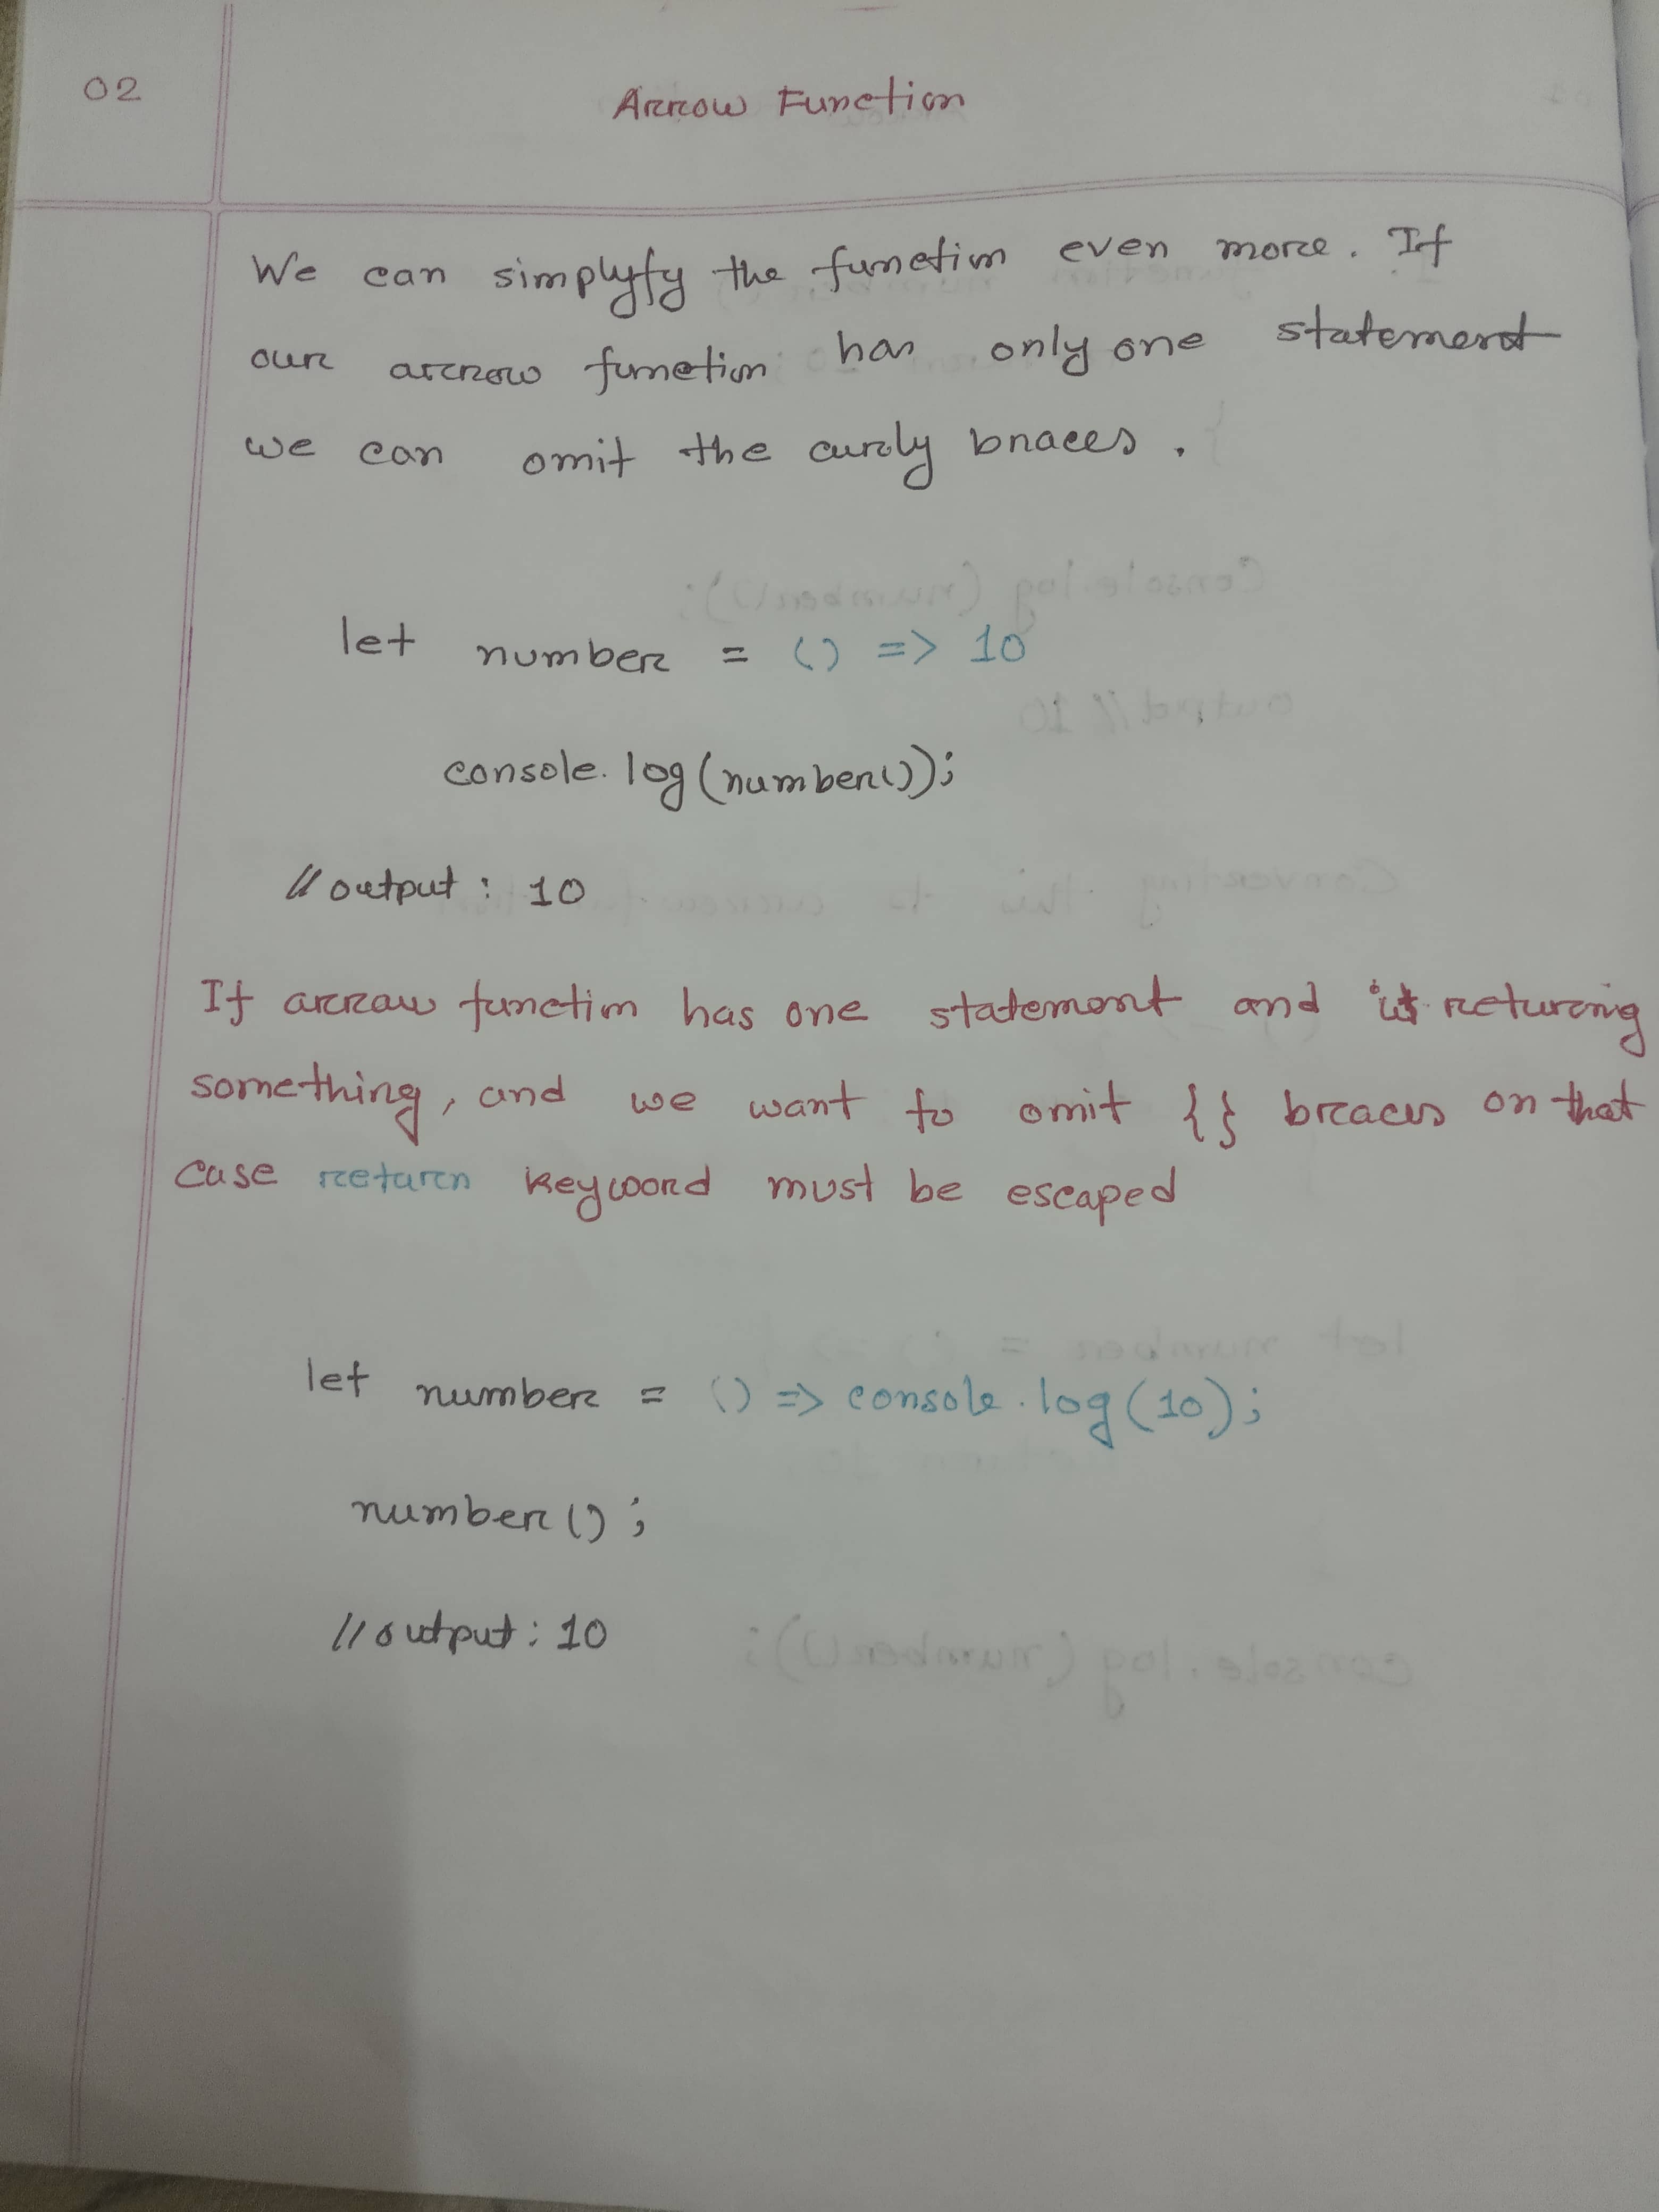 02
Arrow Function
We can simplyfy the function even more. If
our arrow function has only one statement
we can omit the curly braces.
let number = () => 10
console.log(number());
//output: 10
If arraw function has one statement and it returing
something, and we want to omit {} braces on that
case return keyword must be escaped
let number = () => console.log(10);
number();
//output: 10